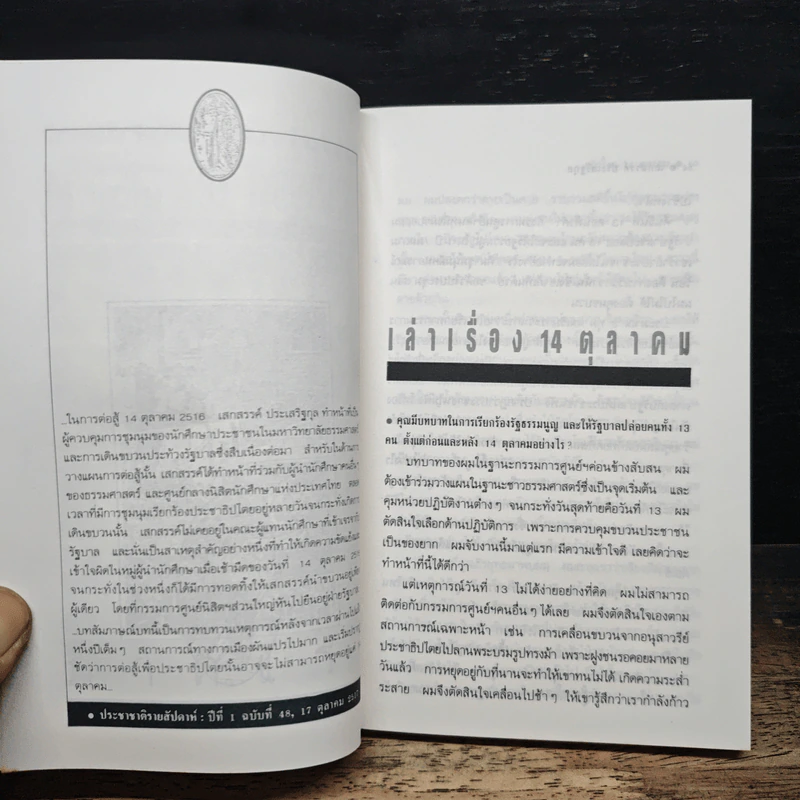 ...ในการต่อสู้ 14 ตุลาคม 2516 เสกสรรค์ ประเสริฐกุล ทำหน้าที่เป็น
ผู้ควบคุมการชุมนุมของนักศึกษาประชาชนในมหาวิทยาลัยธรรมศาสตร์
และการเดินขบวนประท้วงรัฐบาลซึ่งสืบเนื่องต่อมา สำหรับในด้านการ
วางแผนการต่อสู้นั้น เสกสรรค์ได้ทำหน้าที่ร่วมกับผู้นำนักศึกษาคนอื่นๆ
ของธรรมศาสตร์ และศูนย์กลางนิสิตนักศึกษาแห่งประเทศไทย ตลอด
เวลาที่มีการชุมนุมเรียกร้องประชาธิปไตยอยู่หลายวันจนกระทั่งเกิดการ
เดินขบวนนั้น เสกสรรค์ไม่เคยอยู่ในคณะผู้แทนนักศึกษาที่เข้าเจรจากับ
รัฐบาล และนั่นเป็นสาเหตุสำคัญอย่างหนึ่งที่ทำให้เกิดความขัดแย้งและ
เข้าใจผิดในหมู่ผู้นำนักศึกษาเมื่อเช้ามืดของวันที่ 14 ตุลาคม
จนกระทั่งในช่วงหนึ่งก็ได้มีการทอดทิ้งให้เสกสรรค์นำขบวนอยู่เพียง
ผู้เดียว โดยที่กรรมการศูนย์นิสิตฯส่วนใหญ่หันไปยืนอยู่ฝ่ายรัฐบาล
...บทสัมภาษณ์บทนี้เป็นการทบทวนเหตุการณ์หลังจากเวลาผ่านไปแล้ว
หนึ่งปีเต็มๆ สถานการณ์ทางการเมืองผันแปรไปมาก และเริ่มปรากฏ
ชัดว่าการต่อสู้เพื่อประชาธิปไตยนั้นอาจจะไม่สามารถหยุดอยู่แค่
ตุลาคม...
● ประชาชาติรายสัปดาห์ : ปีที่ 1 ฉบับที่ 48, 17 ตุลาคม
เล่าเรื่อง 14 ตุลาคม
● คุณมีบทบาทในการเรียกร้องรัฐธรรมนูญ และให้รัฐบาลปล่อยคนทั้ง 13
คน ตั้งแต่ก่อนและหลัง 14 ตุลาคมอย่างไร?
บทบาทของผมในฐานะกรรมการศูนย์ฯค่อนข้างสับสน ผม
ต้องเข้าร่วมวางแผนในฐานะชาวธรรมศาสตร์ซึ่งเป็นจุดเริ่มต้น และ
คุมหน่วยปฏิบัติงานต่างๆ จนกระทั่งวันสุดท้ายคือวันที่ 13 ผม
ตัดสินใจเลือกด้านปฏิบัติการ เพราะการควบคุมขบวนประชาชน
เป็นของยาก ผมจับงานนี้มาแต่แรก มีความเข้าใจดี เลยคิดว่าจะ
ทำหน้าที่นี้ได้ดีกว่า
แต่เหตุการณ์วันที่ 13 ไม่ได้ง่ายอย่างที่คิด ผมไม่สามารถ
ติดต่อกับกรรมการศูนย์ฯคนอื่นๆ ได้เลย ผมจึงตัดสินใจเองตาม
สถานการณ์เฉพาะหน้า เช่น การเคลื่อนขบวนจากอนุสาวรีย์
ประชาธิปไตยไปลานพระบรมรูปทรงม้า เพราะฝูงชนรอคอยมาหลาย
วันแล้ว การหยุดอยู่กับที่นานจะทำให้เขาทนไม่ได้ เกิดความระส่ำ
ระสาย ผมจึงตัดสินใจเคลื่อนไปช้าๆ ให้เขารู้สึกว่าเรากำลังก้าว